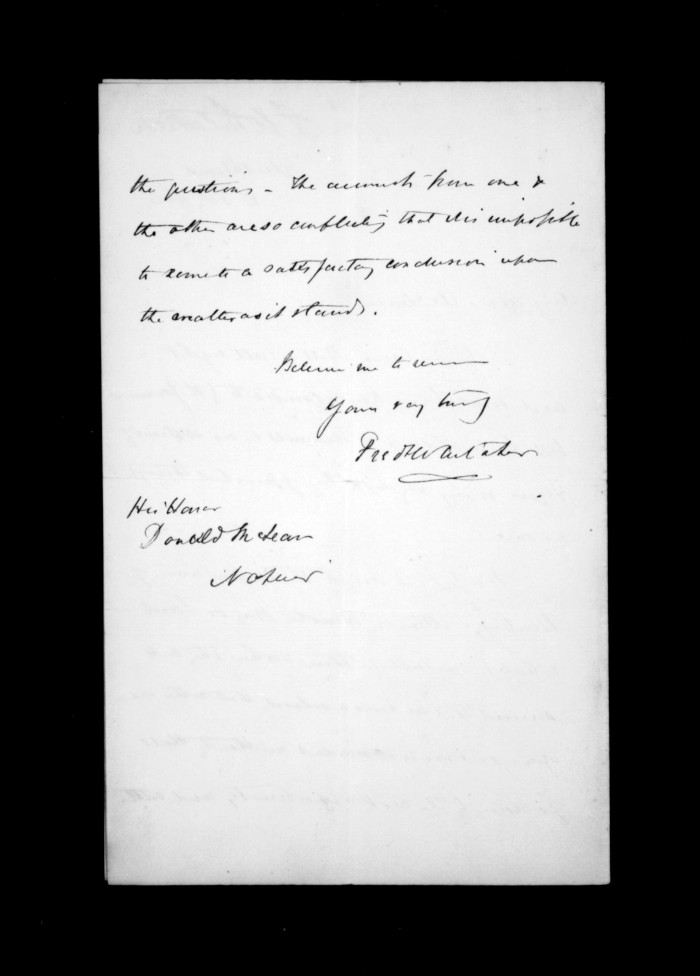 the questions – The accounts from one &
the other are so conflicting that it is impossible
to come to a satisfactory conclusion upon
the matter as it stands.
Believe me to remain
Yours very truly
Fred Whitaker
His Honor
Donald McLean
Napier